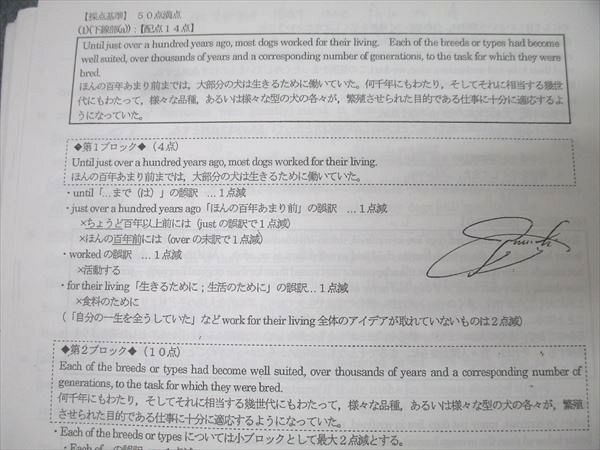 【採点基準】 50点満点
(1)(下線部(a)):【配点14点】
Until just over a hundred years ago, most dogs worked for their living. Each of the breeds or types had become
well suited, over thousands of years and a corresponding number of generations, to the task for which they were
bred.
ほんの百年あまり前までは，大部分の犬は生きるために働いていた。何千年にもわたり，そしてそれに相当する幾世
代にもわたって，様々な品種，あるいは様々な型の犬の各々が，繁殖させられた目的である仕事に十分に適応するよ
うになっていた。
◆第1ブロック◆（4点）
Until just over a hundred years ago, most dogs worked for their living.
ほんの百年あまり前までは，大部分の犬は生きるために働いていた。
・until「…まで（は）」の誤訳 …1点減
・just over a hundred years ago「ほんの百年あまり前」の誤訳 …1点減
×ちょうど百年以上前には（just の誤訳で1点減）
×ほんの百年前には（over の未訳で1点減）
・worked の誤訳 …1点減
×活動する
・for their living「生きるために；生活のために」の誤訳…1点減
×食料のために
（「自分の一生を全うしていた」など work for their living 全体のアイデアが取れていないものは2点減）
◆第2ブロック◆（10点）
Each of the breeds or types had become well suited, over thousands of years and a corresponding number of
generations, to the task for which they were bred.
何千年にもわたり，そしてそれに相当する幾世代にもわたって，様々な品種，あるいは様々な型の犬の各々が，繁殖
させられた目的である仕事に十分に適応するようになっていた。
・Each of the breeds or types については小ブロックとして最大2点減とする。